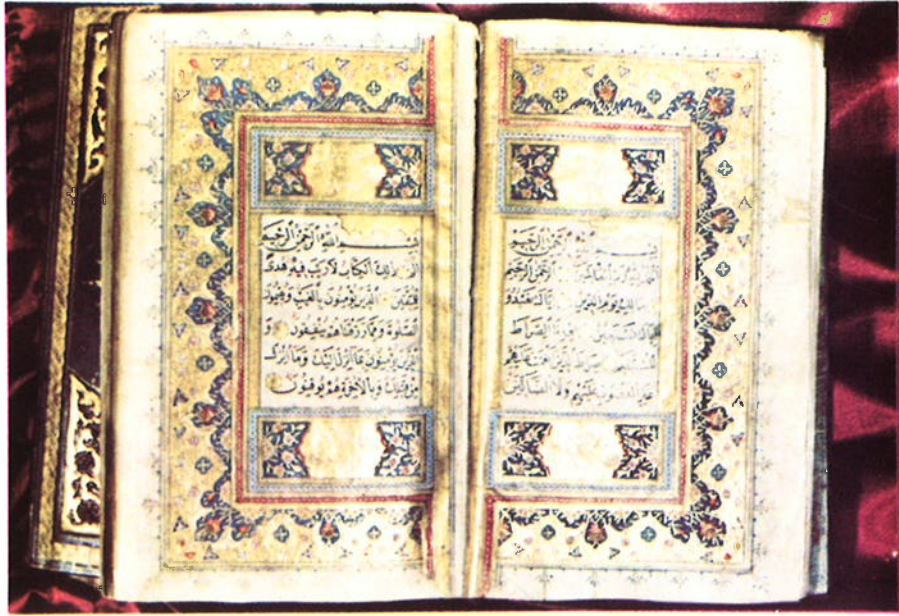 بسم الله الرحمن الرحيم
الحمد لله رب العالمين الرحمن الرحيم
مالك يوم الدين إياك نعبد و
إياك نستعين اهدنا الصراط
المستقيم صراط الذين أنعمت عليهم
غير المغضوب عليهم ولا الضالين
بسم الله الرحمن الرحيم
الم ذلك الكتاب لا ريب فيه هدى
للمتقين الذين يؤمنون بالغيب ويقيمون
الصلوة ومما رزقناهم ينفقون و
الذين يؤمنون بما أنزل إليك وما أنزل
من قبلك وبالآخرة هم يوقنون